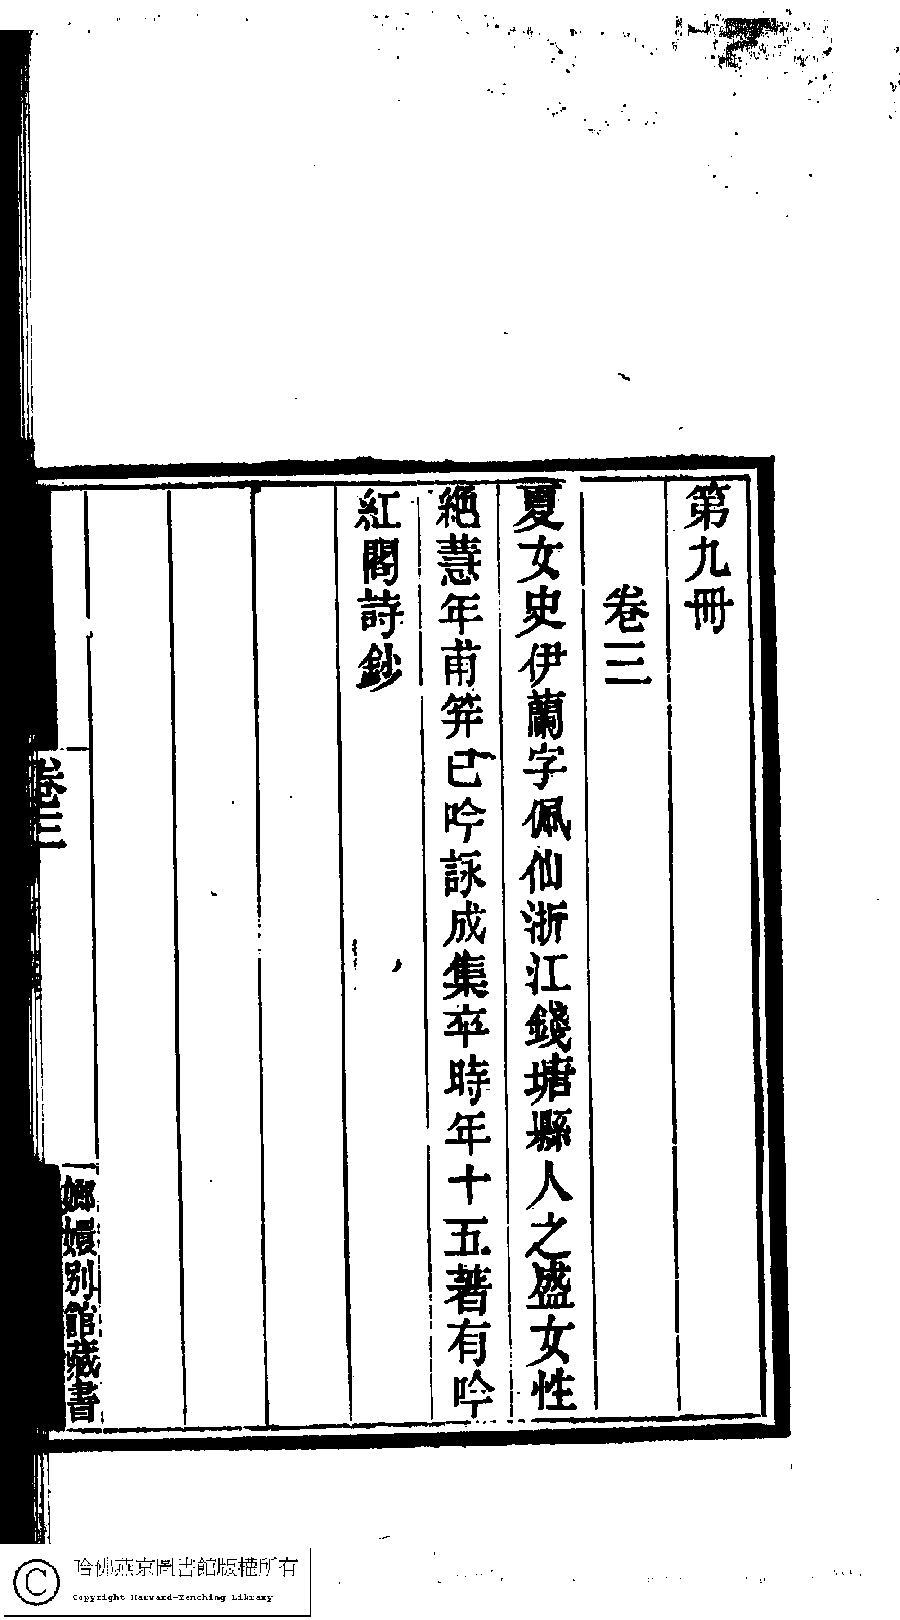 第九冊
卷三
夏女史伊蘭字佩仙浙江錢塘縣人之盛女性
絕慧年甫笄已吟詠成集卒時年十五著有吟
紅閣詩鈔
卷三
嫏嬛別館藏書
哈佛燕京圖書館版權所有
Copyright Harvard-Yenching Library